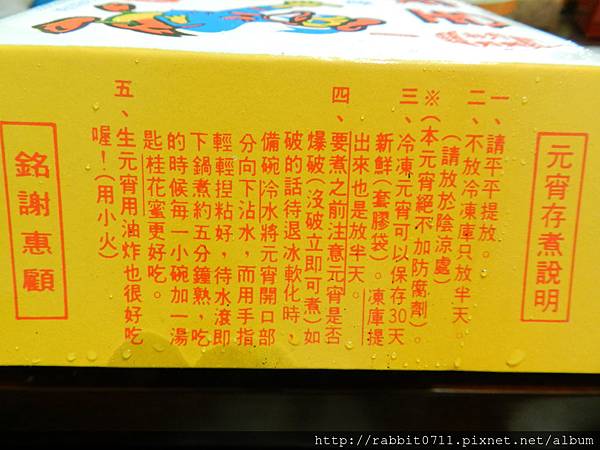 元宵存煮說明
一、請平平提放。
二、不放冷凍庫只放半天。
(請放於陰涼處)
※(本元宵絕不加防腐劑)。
三、冷凍元宵可以保存30天
新鮮(套膠袋)。凍庫提
出來也是放半天。
四、要煮之前注意元宵是否
爆破(沒破立即可煮)如
破的話待退冰軟化時，
備碗冷水將元宵開口部
分向下沾水，而用手指
輕輕捏粘好，待水滾即
下鍋煮約五分鐘熟，吃
的時候每一小碗加一湯
匙桂花蜜更好吃。
五、生元宵用油炸也很好吃
喔！(用小火)
銘謝惠顧
http://rabbit0711.pixnet.net/album